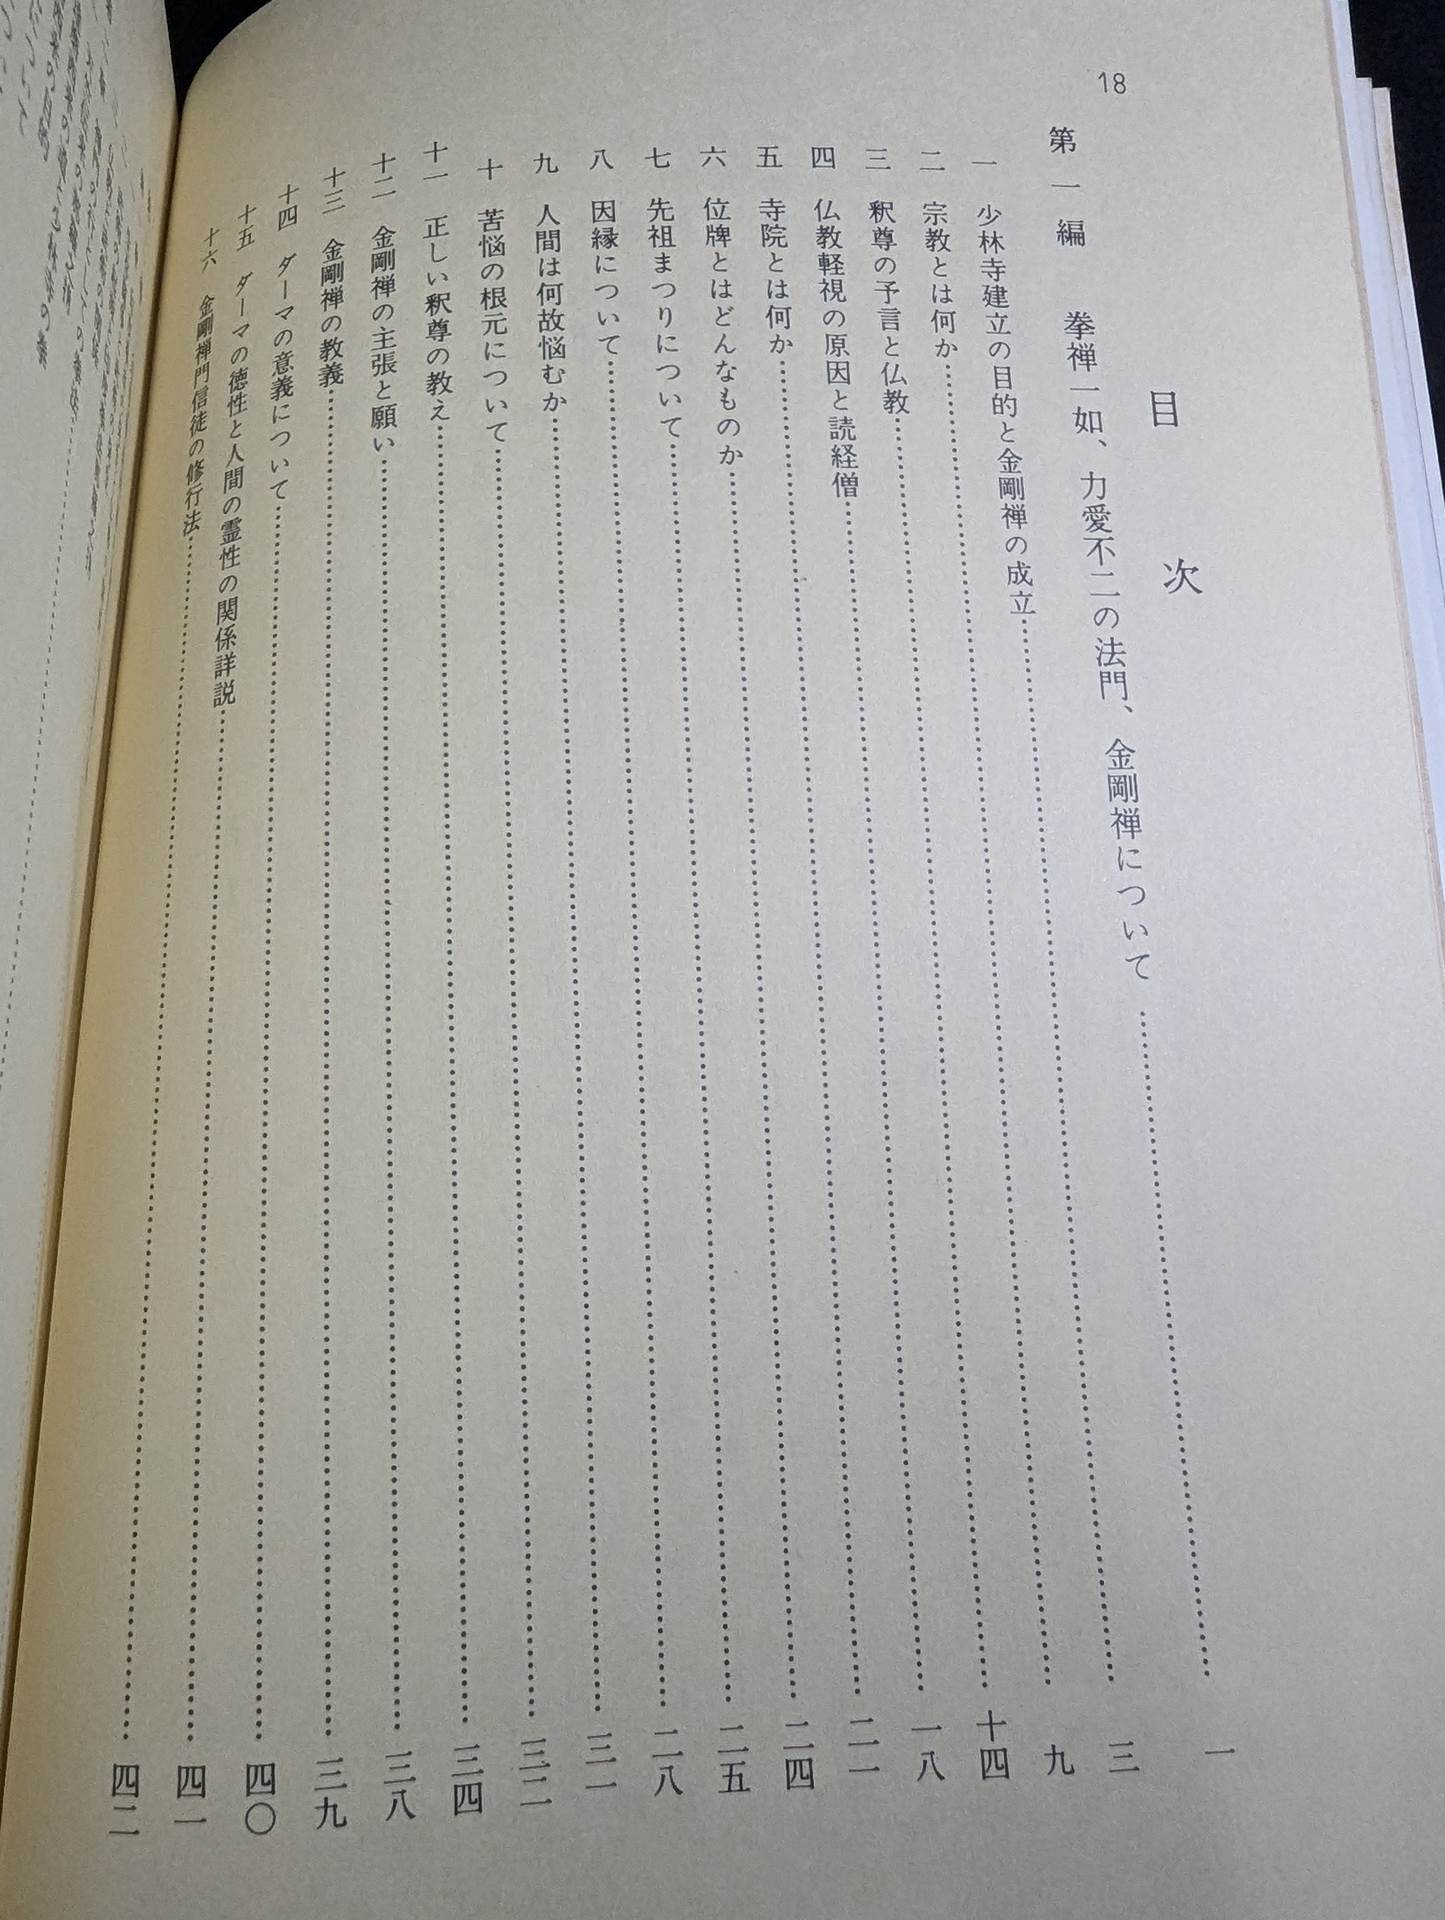 18
目次
第一編 拳禅一如、力愛不二の法門、金剛禅について……一
一 少林寺建立の目的と金剛禅の成立……三
二 宗教とは何か……九
三 釈尊の予言と仏教……十四
四 仏教軽視の原因と読経僧……一八
五 寺院とは何か……二一
六 位牌とはどんなものか……二四
七 先祖まつりについて……二五
八 因縁について……二八
九 人間は何故悩むか……三一
十 苦悩の根元について……三二
十一 正しい釈尊の教え……三四
十二 金剛禅の主張と願い……三八
十三 金剛禅の教義……三九
十四 ダーマの意義について……四〇
十五 ダーマの徳性と人間の霊性の関係詳説……四一
十六 金剛禅門信徒の修行法……四二